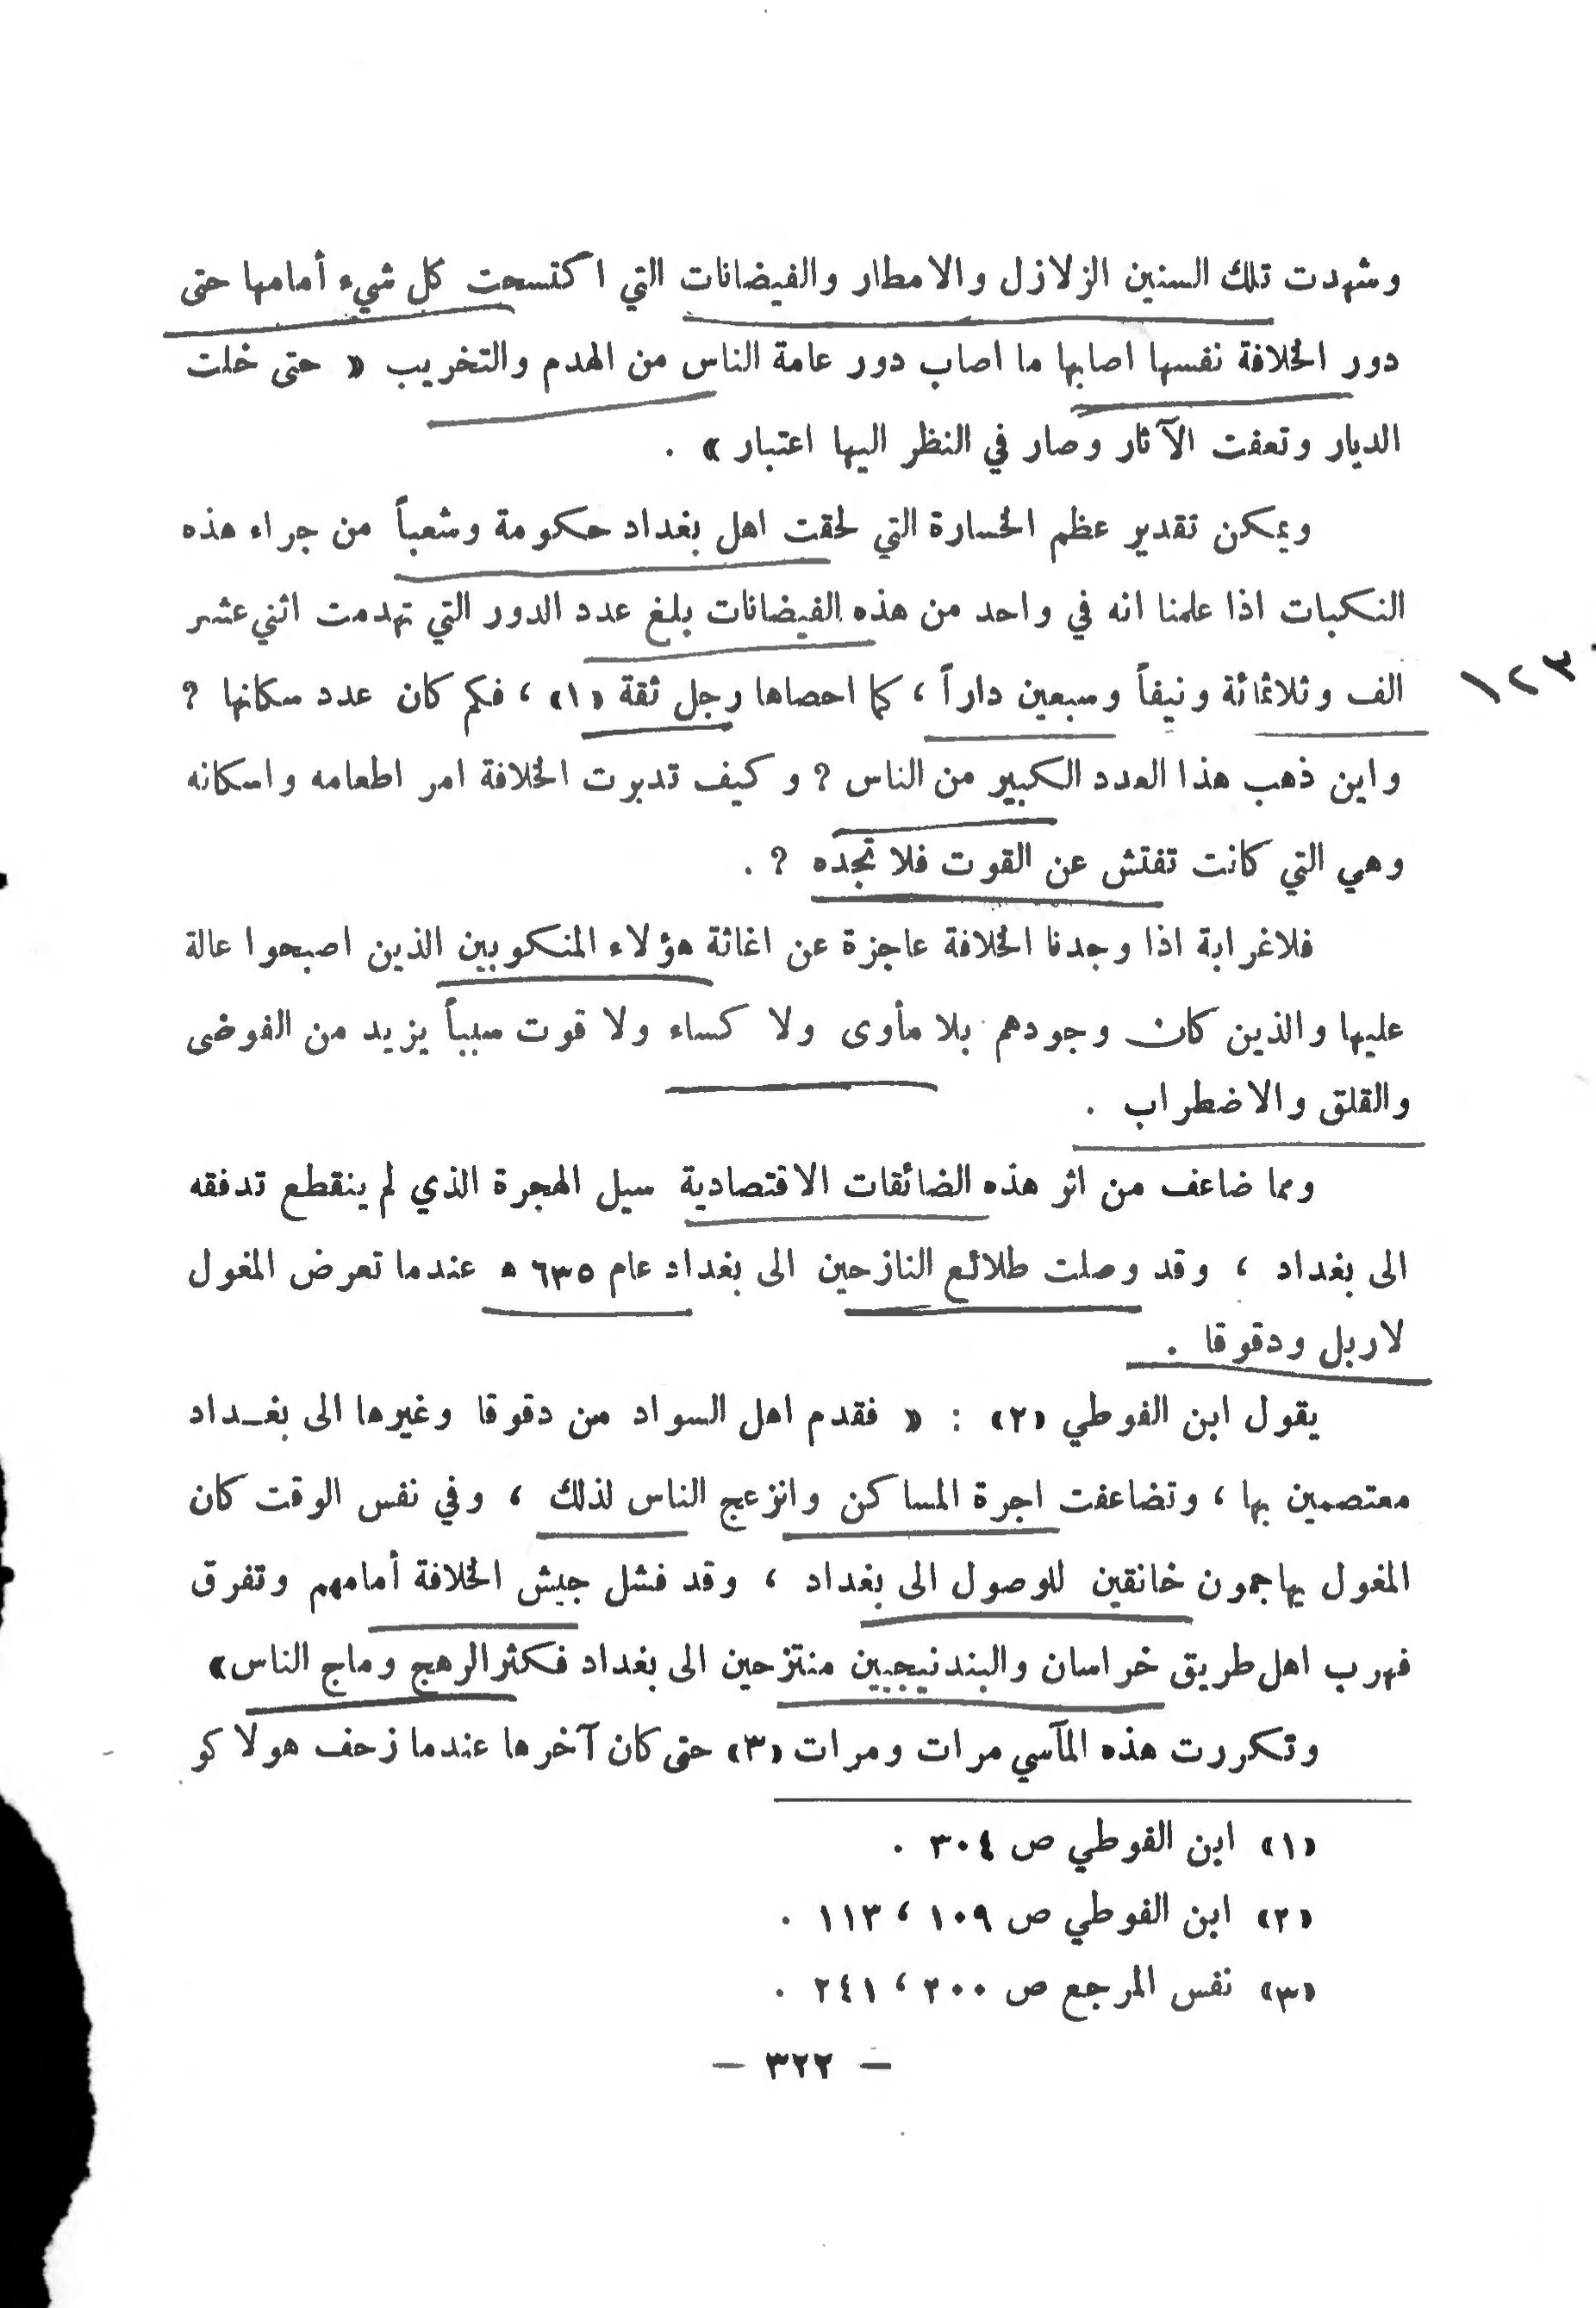 وشهدت تلك السنين الزلازل والامطار والفيضانات التي اكتسحت كل شيء أمامها حتى
دور الخلافة نفسها اصابها ما اصاب دور عامة الناس من الهدم والتخريب « حتى خلت
الديار وتعفت الآثار وصار في النظر اليها اعتبار » .
ويمكن تقدير عظم الخسارة التي لحقت اهل بغداد حكومة وشعباً من جراء هذه
النكبات اذا علمنا انه في واحد من هذه الفيضانات بلغ عدد الدور التي تهدمت اثني عشر
الف وثلاثمائة ونيفاً وسبعين داراً ، كما احصاها رجل ثقة «١» ، فكم كان عدد سكانها ؟
واين ذهب هذا العدد الكبير من الناس ؟ وكيف تدبرت الخلافة امر اطعامه واسكانه
وهي التي كانت تفتش عن القوت فلا تجده ؟ .
فلاغرابة اذا وجدنا الخلافة عاجزة عن اغاثة هؤلاء المنكوبين الذين اصبحوا عالة
عليها والذين كان وجودهم بلا مأوى ولا كساء ولا قوت سبباً يزيد من الفوضى
والقلق والاضطراب .
ومما ضاعف من اثر هذه الضائقات الاقتصادية سيل الهجرة الذي لم ينقطع تدفقه
الى بغداد ، وقد وصلت طلائع النازحين الى بغداد عام ٦٣٥ ه عندما تعرض المغول
لاربل ودقوقا .
يقول ابن الفوطي «٢» : « فقدم اهل السواد من دقوقا وغيرها الى بغـداد
معتصمين بها ، وتضاعفت اجرة المساكن وانزعج الناس لذلك ، وفي نفس الوقت كان
المغول يهاجمون خانقين للوصول الى بغداد ، وقد فشل جيش الخلافة أمامهم وتفرق
فهرب اهل طريق خراسان والبندنيجيين منتزحين الى بغداد فكثر الرهج وماج الناس»
وتكررت هذه المآسي مرات ومرات «٣» حتى كان آخرها عندما زحف هولاكو
«١» ابن الفوطي ص ٣٠٤ .
«٢» ابن الفوطي ص ١٠٩ ، ١١٣ .
«٣» نفس المرجع ص ٢٠٠ ، ٢٤١ .
— ٣٢٢ —